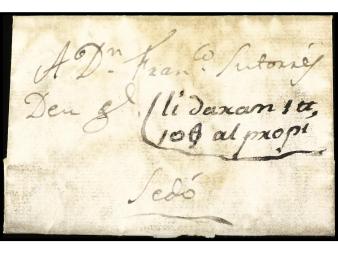 A Dn. Franco. Sutorrés
Deu gde. li daran 1 tt,
10 § al propi
Sedó